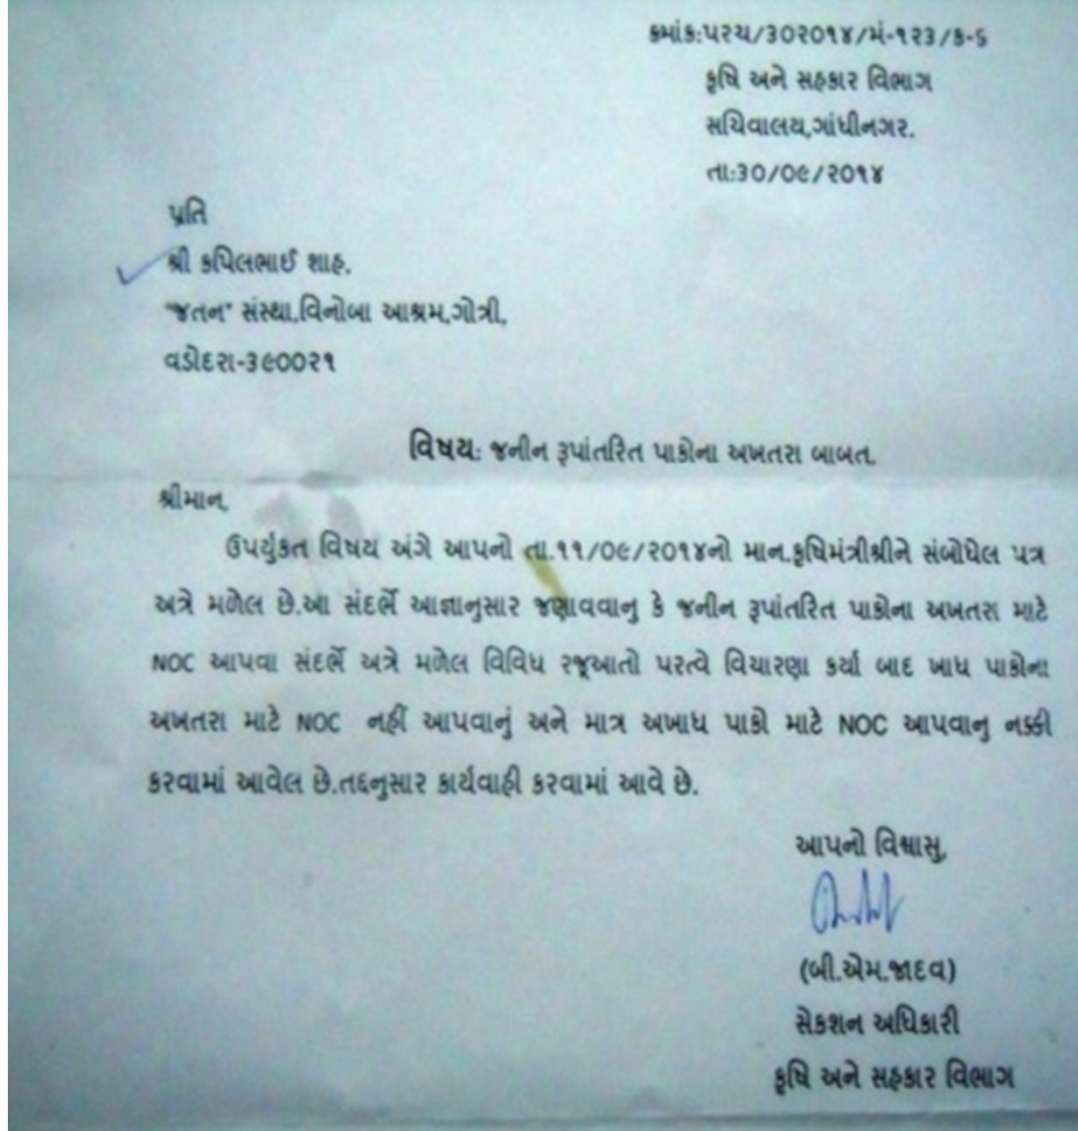 ક્રમાંક:પરચ/૩૦૨૦૧૪/મં-૧૨૩/ક-૬
કૃષિ અને સહકાર વિભાગ
સચિવાલય,ગાંધીનગર.
તા:૩૦/૦૯/૨૦૧૪
પ્રતિ
શ્રી કપિલભાઈ શાહ,
"જતન" સંસ્થા,વિનોબા આશ્રમ,ગોત્રી,
વડોદરા-૩૯૦૦૨૧
વિષય: જનીન રૂપાંતરિત પાકોના અખતરા બાબત.
શ્રીમાન,
ઉપર્યુકત વિષય અંગે આપનો તા.૧૧/૦૯/૨૦૧૪નો માન.કૃષિમંત્રીશ્રીને સંબોધેલ પત્ર
અત્રે મળેલ છે.આ સંદર્ભે આજ્ઞાનુસાર જણાવવાનુ કે જનીન રૂપાંતરિત પાકોના અખતરા માટે
NOC આપવા સંદર્ભે અત્રે મળેલ વિવિધ રજૂઆતો પરત્વે વિચારણા કર્યા બાદ ખાધ પાકોના
અખતરા માટે NOC નહીં આપવાનું અને માત્ર અખાધ પાકો માટે NOC આપવાનુ નક્કી
કરવામાં આવેલ છે.તદ્દનુસાર કાર્યવાહી કરવામાં આવે છે.
આપનો વિશ્વાસુ,
(બી.એમ.જાદવ)
સેકશન અધિકારી
કૃષિ અને સહકાર વિભાગ